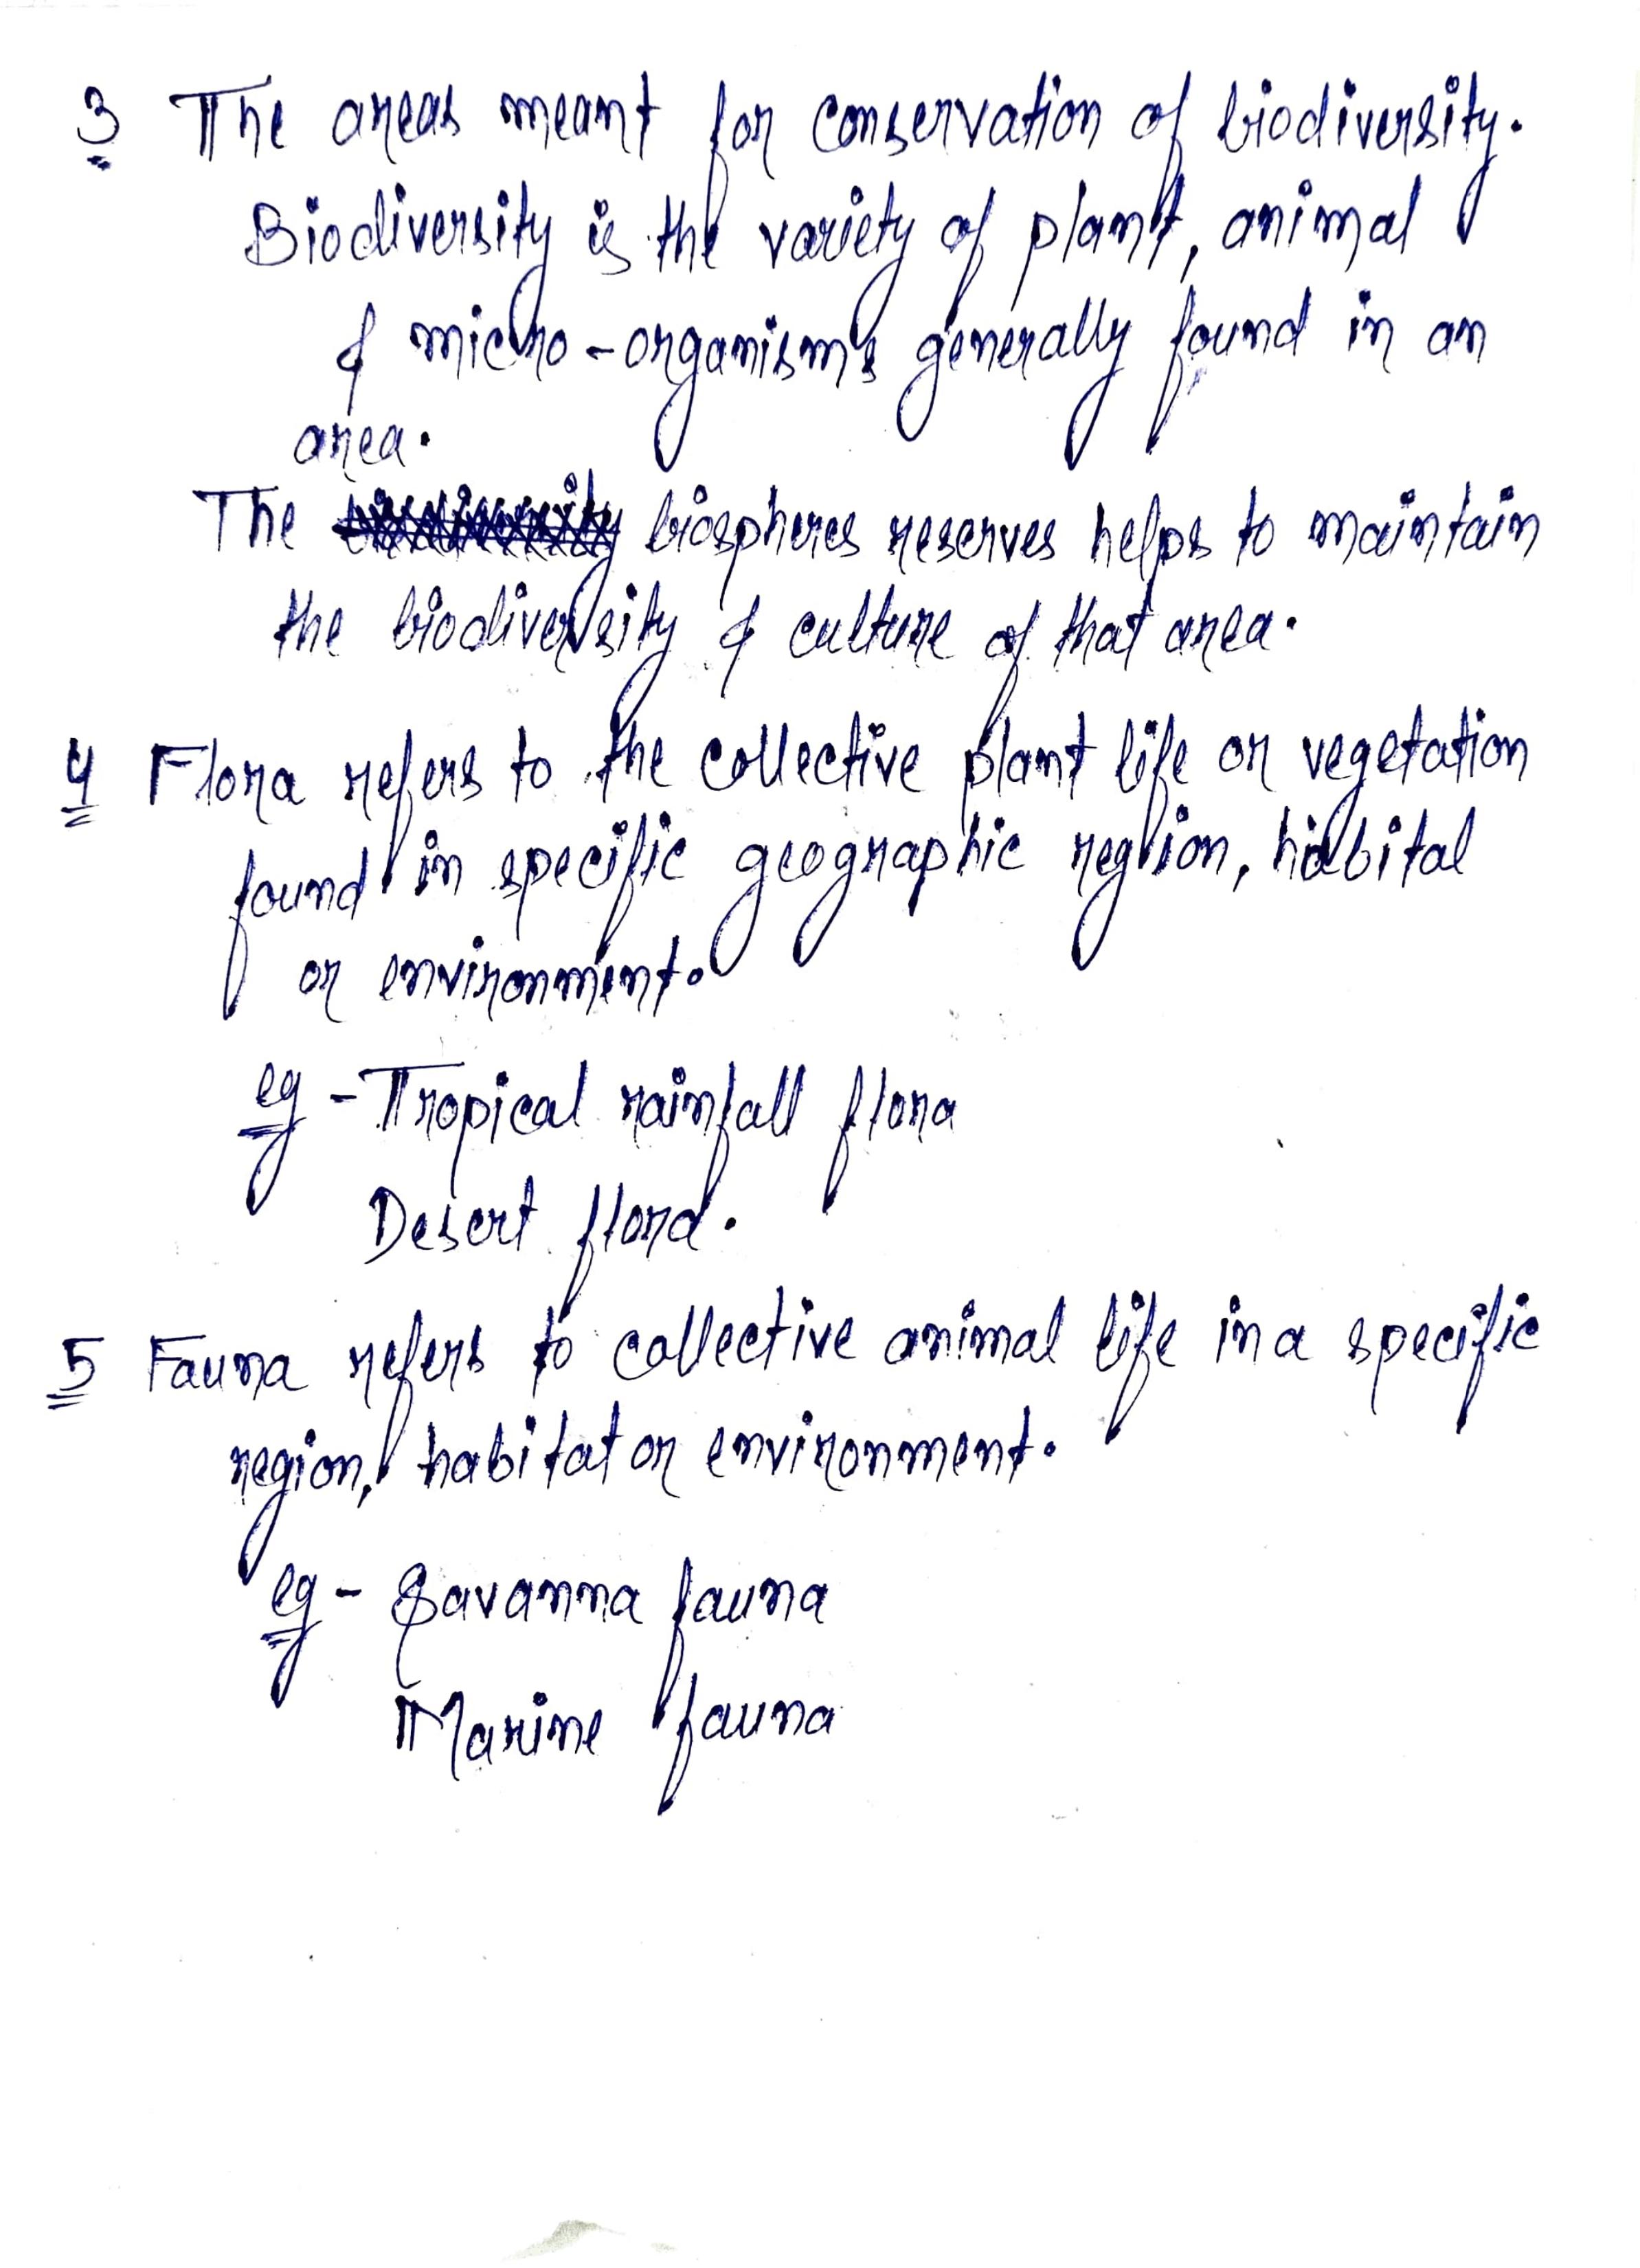 3 The areas meant for conservation of biodiversity.
Biodiversity is the variety of plant, animal
& micro-organisms generally found in an
area.
The biospheres reserves helps to maintain
the biodiversity & culture of that area.
4 Flora refers to the collective plant life or vegetation
found in specific geographic region, habital
or environment.
eg - Tropical rainfall flora
Desert flora.
5 Fauna refers to collective animal life in a specific
region, habitat or environment.
eg - Savanna fauna
Marine fauna